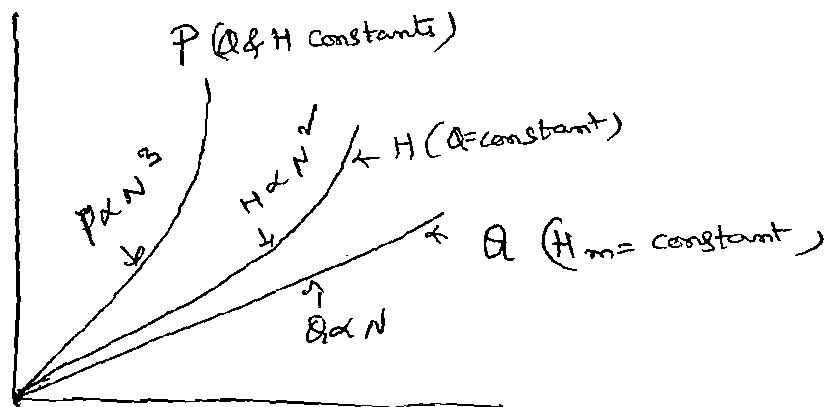 P (Q & H constants)
P ∝ N³
H ∝ N²
← H (Q = constant)
Q (Hm = constant,
Q ∝ N